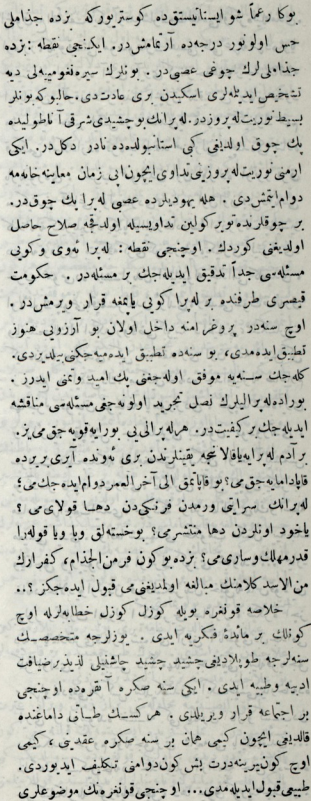 بوكا رغماً شو ايستاتيستيق‌ده كوستريوركه بزده جذاملى
حس اولونور درجه‌ده آرتمامش‌در. ايكنجى نقطه : بزده
جذاملى‌لرك چوغى عصبى‌در. بونلرك سيره‌نغوميه‌لى ديه
تشخيص ايديله‌لرى اسكيدن برى عادت‌دى. حالبو كه بونلر
بسيط نوريت‌له‌پروزدر. له‌پرانك بو چشيدى شرقى آناطوليده
پك چوق اولديغى كبى استانبولده‌ده نادر دكل‌در. ايكى
ارمنى نوريت‌له‌پروزينى تداوى ايچون ايى زمان معاينه‌خانه‌مه
دوام ايتمش‌دى. هله يهوديلرده عصبى له‌پرا پك چوق‌در.
بر چوقلرنده توبركولين تداويسيله اولدقجه صلاح حاصل
اولديغنى كوردك. اوچنجى نقطه : له‌پرا ئه‌وى و كويى
مسئله‌سى جداً تدقيق ايديله‌جك بر مسئله‌در. حكومت
قيصرى طرفنده بر له‌پرا كويى ياپمغه قرار ويرمش‌در.
اوچ سنه‌در پروغرامنه داخل اولان بو آرزويى هنوز
تطبيق ايده‌مدى، بو سنه‌ده تطبيق ايده‌ميه‌جكنى بيلديردى.
كله‌جك سنه‌يه موفق اوله‌جغنى پك اميد و تمنى ايدرز.
بوراده له‌پراليلرك نصل تجريد اولونه‌جغى مسئله‌سى مناقشه
ايديله‌جك بر كيفيت‌در. هر له‌پرالى‌يى بورايه قويه‌جق‌مى‌يز.
بر آدم له‌پرايه ياقالانجه يقينلرندن برى ئه‌ونده آيرى بر يرده
قاپادامايه‌جق‌مى؟ بو قاپاتمق الى آخر العمر دوام ايده‌جك‌مى؟
له‌پرانك سرايتى ورمدن فرنكى‌دن دها قولاى‌مى ؟
ياخود اونلردن دها منتشرمى؟ بو خسته‌لق وبا ويا قوله‌را
قدر مهلك و سارى‌مى؟ بزده بوكون فر من الجذام، كفرارك
من الاسد كلامنك مبالغه اولمديغنى‌مى قبول ايده‌جكز ؟..
خلاصه قونغره بويله كوزل كوزل خطابه‌لرله اوچ
كونلك بر مائدهٔ فكريه ايدى. يوزلرجه متخصصك
سنه‌لرجه طوپلاديغى چشيد چشيد چاشنيلى لذيذ بر ضيافت
ادبيه و طبيه ايدى. ايكى سنه صكره آنقره‌ده اوچنجى
بر اجتماعه قرار ويريلدى. هر كسك طاتى داماغنده
قالديغى ايچون كيمى همان بر سنه صكره عقدينى، كيمى
اوچ كون يرينه درت بش كون دوامنى تكليف ايديوردى.
طبيعى قبول ايديله‌مدى... اوچنجى قونغره‌نك موضوعلرى